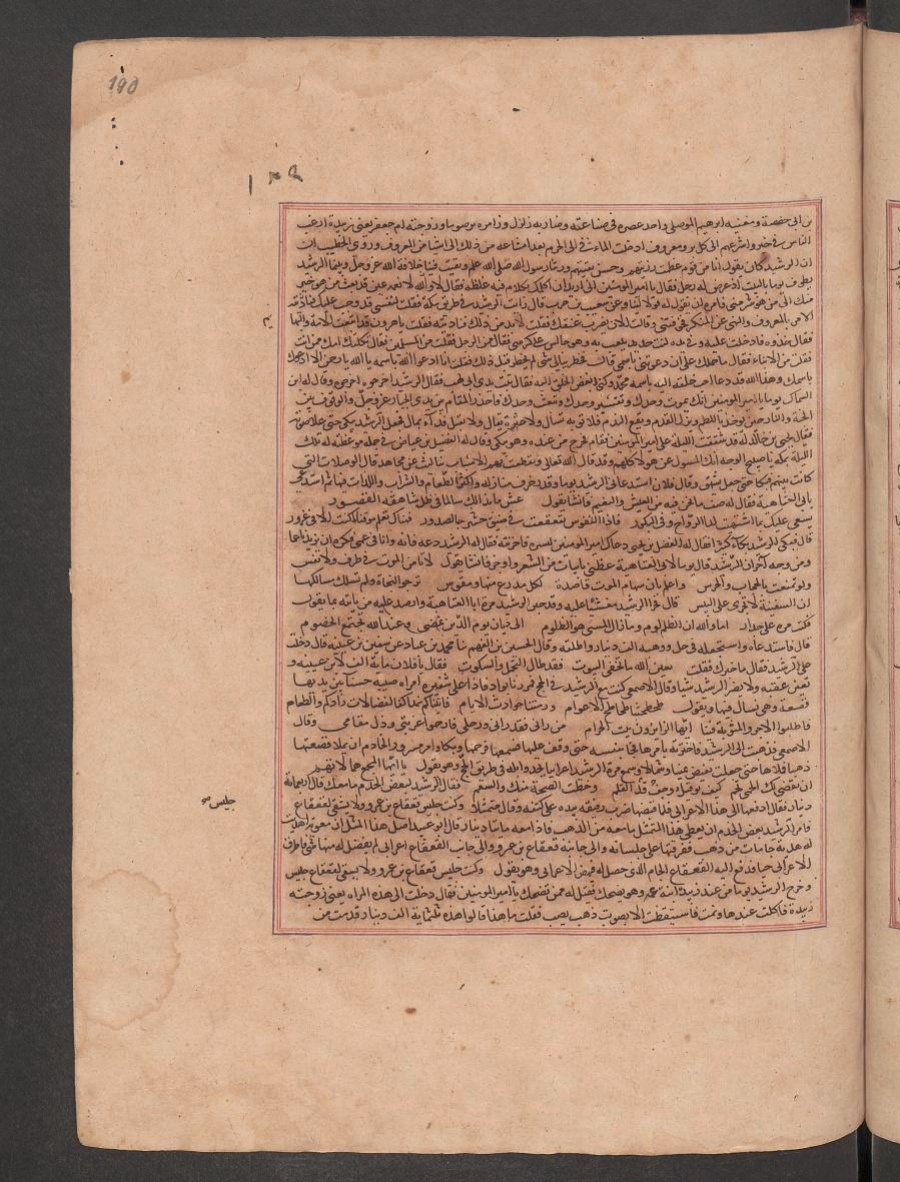 190
بن ابى حفصة ومغنيه ابرهيم الموصلي واحد عصره في صناعته وضاربه زلزل وزامره برصوما وزوجته ام جعفر يعنى زبيدة ارغب
الناس في خير واسرعهم الى كل بر ومعروف ادخلت الماء في الى الحرم بعد امتناعه من ذلك الى اشيا من المعروف وروى الخطيب ان
ان الرشيد كان يقول انا من قوم عظمت رزيتهم وحسن بعثتهم ورثنا رسول الله صلى الله علم وبقيت فينا خلافة الله عز وجل وبينما الرشيد
يطوف يوما بالبيت اذ عرض له رجل فقال يا امير المومنين انى اريد ان اكلمك بكلام فيه غلظة فقال لا ولا نعم عين قد بعث من هو خير
منك الى من هو شر مني فامره ان يقول له قولا لينا وعن شعيب بن حرب قال رايت الرشيد في طريق مكة فقلت لنفسي قد وجب عليك
الامر بالمعروف والنهى عن المنكر فخوفتنى وقالت الان يضرب عنقك فقلت لابد من ذلك فناديته فقلت يا هرون قد اتعبت الامة والبهايم
فقال خذوه فادخلت عليه وفي يده لت حديد يلعب به وهو جالس على كرسى فقال ممن الرجل فقلت من المسلمين فقال ثكلتك امك ممن انت
فقلت من الابناء فقال ما حملك على ان دعوتنى باسمى قال فخطر ببالى شى لم يخطر قبل ذلك فقلت انا ادعوا الله باسمه يا الله يا رحمن الا ادعوك
باسمك وهذا الله قد دعا احب خلقه اليه باسمه محمد وكنى ابغض الخلق اليه فقال تبت يدى ابى لهب فقال الرشيد اخرجوه اخرجوه وقال له ابن
السماك يوما يا امير المومنين انك تموت وحدك وتقبر وحدك وتبعث وحدك فاحذر المقام بين يدى الجبار عز وجل والوقوف بين
الجنة والنار حين يوخذ بالكظم وتزل القدم ويقع الندم فلا توبة تنال ولا عثرة تقال ولا تقبل فداء بمال فجعل الرشيد يبكى حتى علا صوته
فقال يحيى بن خالد له قد شققت الليلة على امير المومنين فقام فخرج من عنده وهو يبكى وقال له الفضيل بن عياض في جملة موعظته له تلك
الليلة بمكة يا صبيح الوجه انك المسول عن هولا كلهم وقد قال الله تعالى وتقطعت بهم الاسباب ثنا ليث عن مجاهد قال الوصلات التى
كانت بينهم فبكا حتى جعل يشهق وقال فلان استدعانى الرشيد يوما وقد زخرف منازله واكثر الطعام والشراب واللذات فيها ثم استدعى
بابى العتاهية فقال له صف ما نحن فيه من العيش والنعيم فانشا يقول عش ما بدا لك سالما في ظل شاهقة القصور
يسعى عليك بما اشتهيت لدا الرواح وفي البكور فاذا النفوس تقعقعت في ضيق حشرجة الصدور فهناك تعلم موقنا ما كنت الا في غرور
قال فبكى الرشيد بكاء كثيرا فقال له الفضل بن يحيى دعاك امير المومنين لتسره فاحزنته فقال له الرشيد دعه فانه رانا في عمى فكره ان يزيدنا عما
ومن وجه اخر ان الرشيد قال يوما لابى العتاهية عظنى بابيات من الشعر واوجز فانشا يقول لا تامن الموت في طرف ولا نفس
ولو تمنعت بالحجاب والحرس واعلم بان سهام الموت قاصدة لكل مدرع منها ومترس ترجو النجاة ولم تسلك مسالكها
ان السفينة لا تجرى على اليبس قال فخر الرشيد مغشيا عليه وقد حبس الرشيد مرة ابا العتاهية وارصد عليه من ياتيه بما يقول
فكتب مرة على جدار اما والله ان الظلم لوم وما زال المسى هو الظلوم الى ديان يوم الدين نمضى وعند الله تجتمع الخصوم
قال فاستدعاه واستجعله في حل ووهبه الف دينار واطلقه وقال الحسن بن ابى الفهم ثنا محمد بن عباد عن سفين بن عيينه قال دخلت
على الرشيد فقال ما خبرك فقلت بعين الله ما تخفى البيوت فقد طال التحمل والسكوت فقال يا فلان ماية الف لابن عيينه
تغنى عقبه ولا يضر الرشيد شيا وقال الاصمعى كنت مع الرشيد في الحج فمررنا بواد فاذا على شفيره امراه صبيه حسنا بين يديها
قصعة وهى تسال فيها وتقول طحطحتنا طحاطح الاعوام ورمتنا حوادث الايام فاتيناكم نمد اكفا لفضالات زادكم والطعام
فاطلبوا الاجر والمثوبة فينا ايها الزايرون بيت الحرام من رانى فقد رانى ورحلى فارحموا غربتى وذل مقامى وقال
الاصمعى فذهبت الى الرشيد فاخبرته بامرها فجا بنفسه حتى وقف عليها فسمعها فرحمها وبكا وامر مسرور الخادم ان يملا قصعتها
ذهبا فملاها حتى جعلت تفيض يمينا وشمالا وسمع مرة الرشيد اعرابيا يحدوا ابله في طريق الحج وهو يقول يا ايها المجمع هما لا تهم
ان تقضى لك الحمى تحم كيف توقيك وقد جف القلم وحطت الصحة منك والسقم فقال الرشيد لبعض الخدم ما معك قال اربعماية
دينار فقال ادفعها الى هذا الاعرابى فلما قبضها ضرب رفيقه بيده على كتفه وقال متمثلا وكنت جليس قعقاع بن عمرو ولا يشقى لقعقاع
فامر الرشيد بعض الخدم ان يعطى هذا المتمثل ما معه من الذهب فاذا معه مايتا دينار قال ابو عبيد اصل هذا المثل ان معوية اهديت
له هدية جامات من ذهب ففرقها على جلسايه والى جانبه قعقاع بن عمرو والى جانب القعقاع اعرابى لم يفضل له منها شى فاطرق
الاعرابى حيا فدفع اليه القعقاع الجام الذى حصل له فنهض الاعرابى وهو يقول وكنت جليس قعقاع بن عمرو ولا يشقى لقعقاع جليس
وخرج الرشيد يوما من عند زبيدة ابنة عمه وهو يضحك فقيل له مم تضحك يا امير المومنين فقال دخلت الى هذه المراه يعنى زوجته
زبيدة فاكلت عندها ونمت فما استيقظت الا بصوت ذهب يصب فقلت ما هذا قالوا هذه ثلثماية الف دينار قدمت من
جليس